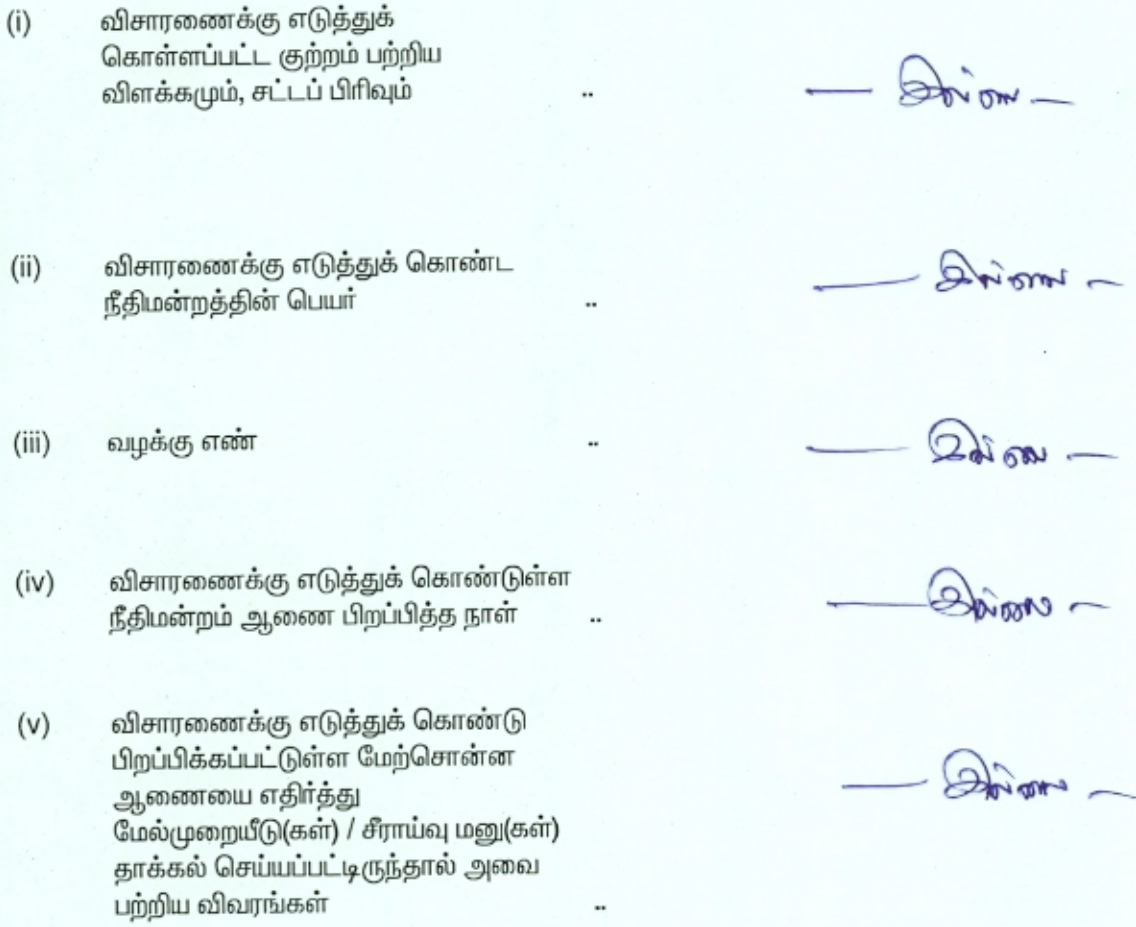 (i) விசாரணைக்கு எடுத்துக்
கொள்ளப்பட்ட குற்றம் பற்றிய
விளக்கமும், சட்டப் பிரிவும் .. — இல்லை —
(ii) விசாரணைக்கு எடுத்துக் கொண்ட
நீதிமன்றத்தின் பெயர் .. — இல்லை —
(iii) வழக்கு எண் .. — இல்லை —
(iv) விசாரணைக்கு எடுத்துக் கொண்டுள்ள
நீதிமன்றம் ஆணை பிறப்பித்த நாள் .. — இல்லை —
(v) விசாரணைக்கு எடுத்துக் கொண்டு
பிறப்பிக்கப்பட்டுள்ள மேற்சொன்ன
ஆணையை எதிர்த்து — இல்லை —
மேல்முறையீடு(கள்) / சீராய்வு மனு(கள்)
தாக்கல் செய்யப்பட்டிருந்தால் அவை
பற்றிய விவரங்கள் ..